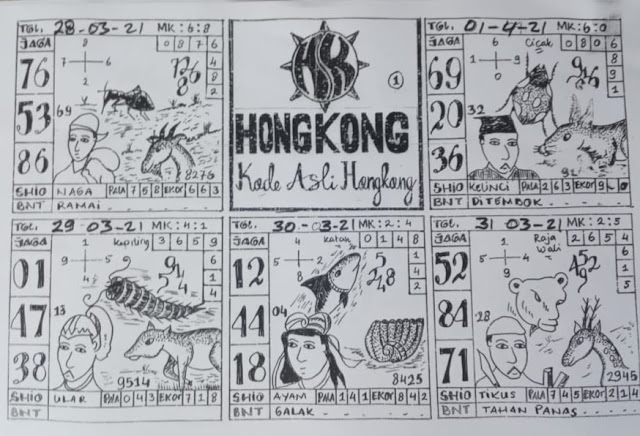 TGL. 28-03-21 MK:6:8
JAGA 8 0 8 7 6
76 7 6 4
2 8
8 2
53 69
86 8276
SHIO NAGA PALA 7 5 8 EKOR 6 6 3
BNT RAMAI
HSK
1
HONGKONG
Kode Asli Hongkong
TGL. 01-4-21 MK:6:0
JAGA 6 Cicak 0 8 0 6
69 1 9 8
0 9
1
20 32
36 91
SHIO KELINCI PALA 2 6 3 EKOR 9 1 0
BNT DITEMBOK
TGL. 29 03-21 MK:4:1
JAGA 1 Kepiting 3 6 5 9
01 9 5 6
4 1
4
47 13
38 9514
SHIO ULAR PALA 0 4 3 EKOR 7 1 8
BNT
TGL. 30-03-21 MK:2:4
JAGA 4 Katak 0 1 4 8
12 5 2 1
8 4
2
44 04
18 8425
SHIO AYAM PALA 1 4 1 EKOR 8 4 2
BNT GALAK
TGL. 31 03-21 MK:2:5
JAGA 1 Raja Wali 2 6 5 4
52 5 4 6
9 1
5
84 28
71 2945
SHIO TIKUS PALA 7 4 5 EKOR 2 1 4
BNT TAHAN PANAS